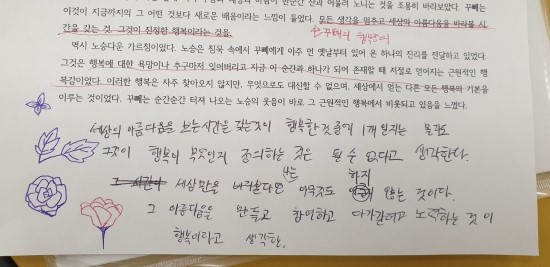 이것이 지금까지의 그 어떤 것보다 새로운 배움이라는 느낌이 들었다. 모든 생각을 멈추고 세상의 아름다움을 바라볼 시
간을 갖는 것. 그것이 진정한 행복이라는 것을.
역시 노승다운 가르침이었다. 노승은 침묵 속에서 꾸뻬에게 아주 먼 옛날부터 있어 온 하나의 진리를 전달하고 있었다.
그것은 행복에 대한 욕망이나 추구마저 잊어버리고 지금 이 순간과 하나가 되어 존재할 때 저절로 얻어지는 근원적인 행
복감이었다. 이러한 행복은 자주 찾아오지 않지만, 무엇으로도 대신할 수 없으며, 세상에서 얻는 다른 모든 행복의 기본을
이루는 것이었다. 꾸뻬는 순간순간 터져 나오는 노승의 웃음이 바로 그 근원적인 행복에서 비롯되고 있음을 느꼈다.
세상의 아름다움을 보는 시간을 갖는것이 행복한것 중에 1개 일지는 몰라도
그것이 행복이 무엇인지 정의하는 것은 될 수 없다고 생각한다.
세상만을 바라본다면 아무것도 하지 않는 것이다.
그 아름다움을 만들고 참여하고 다가갈려고 노력하는 것이
행복이라고 생각한